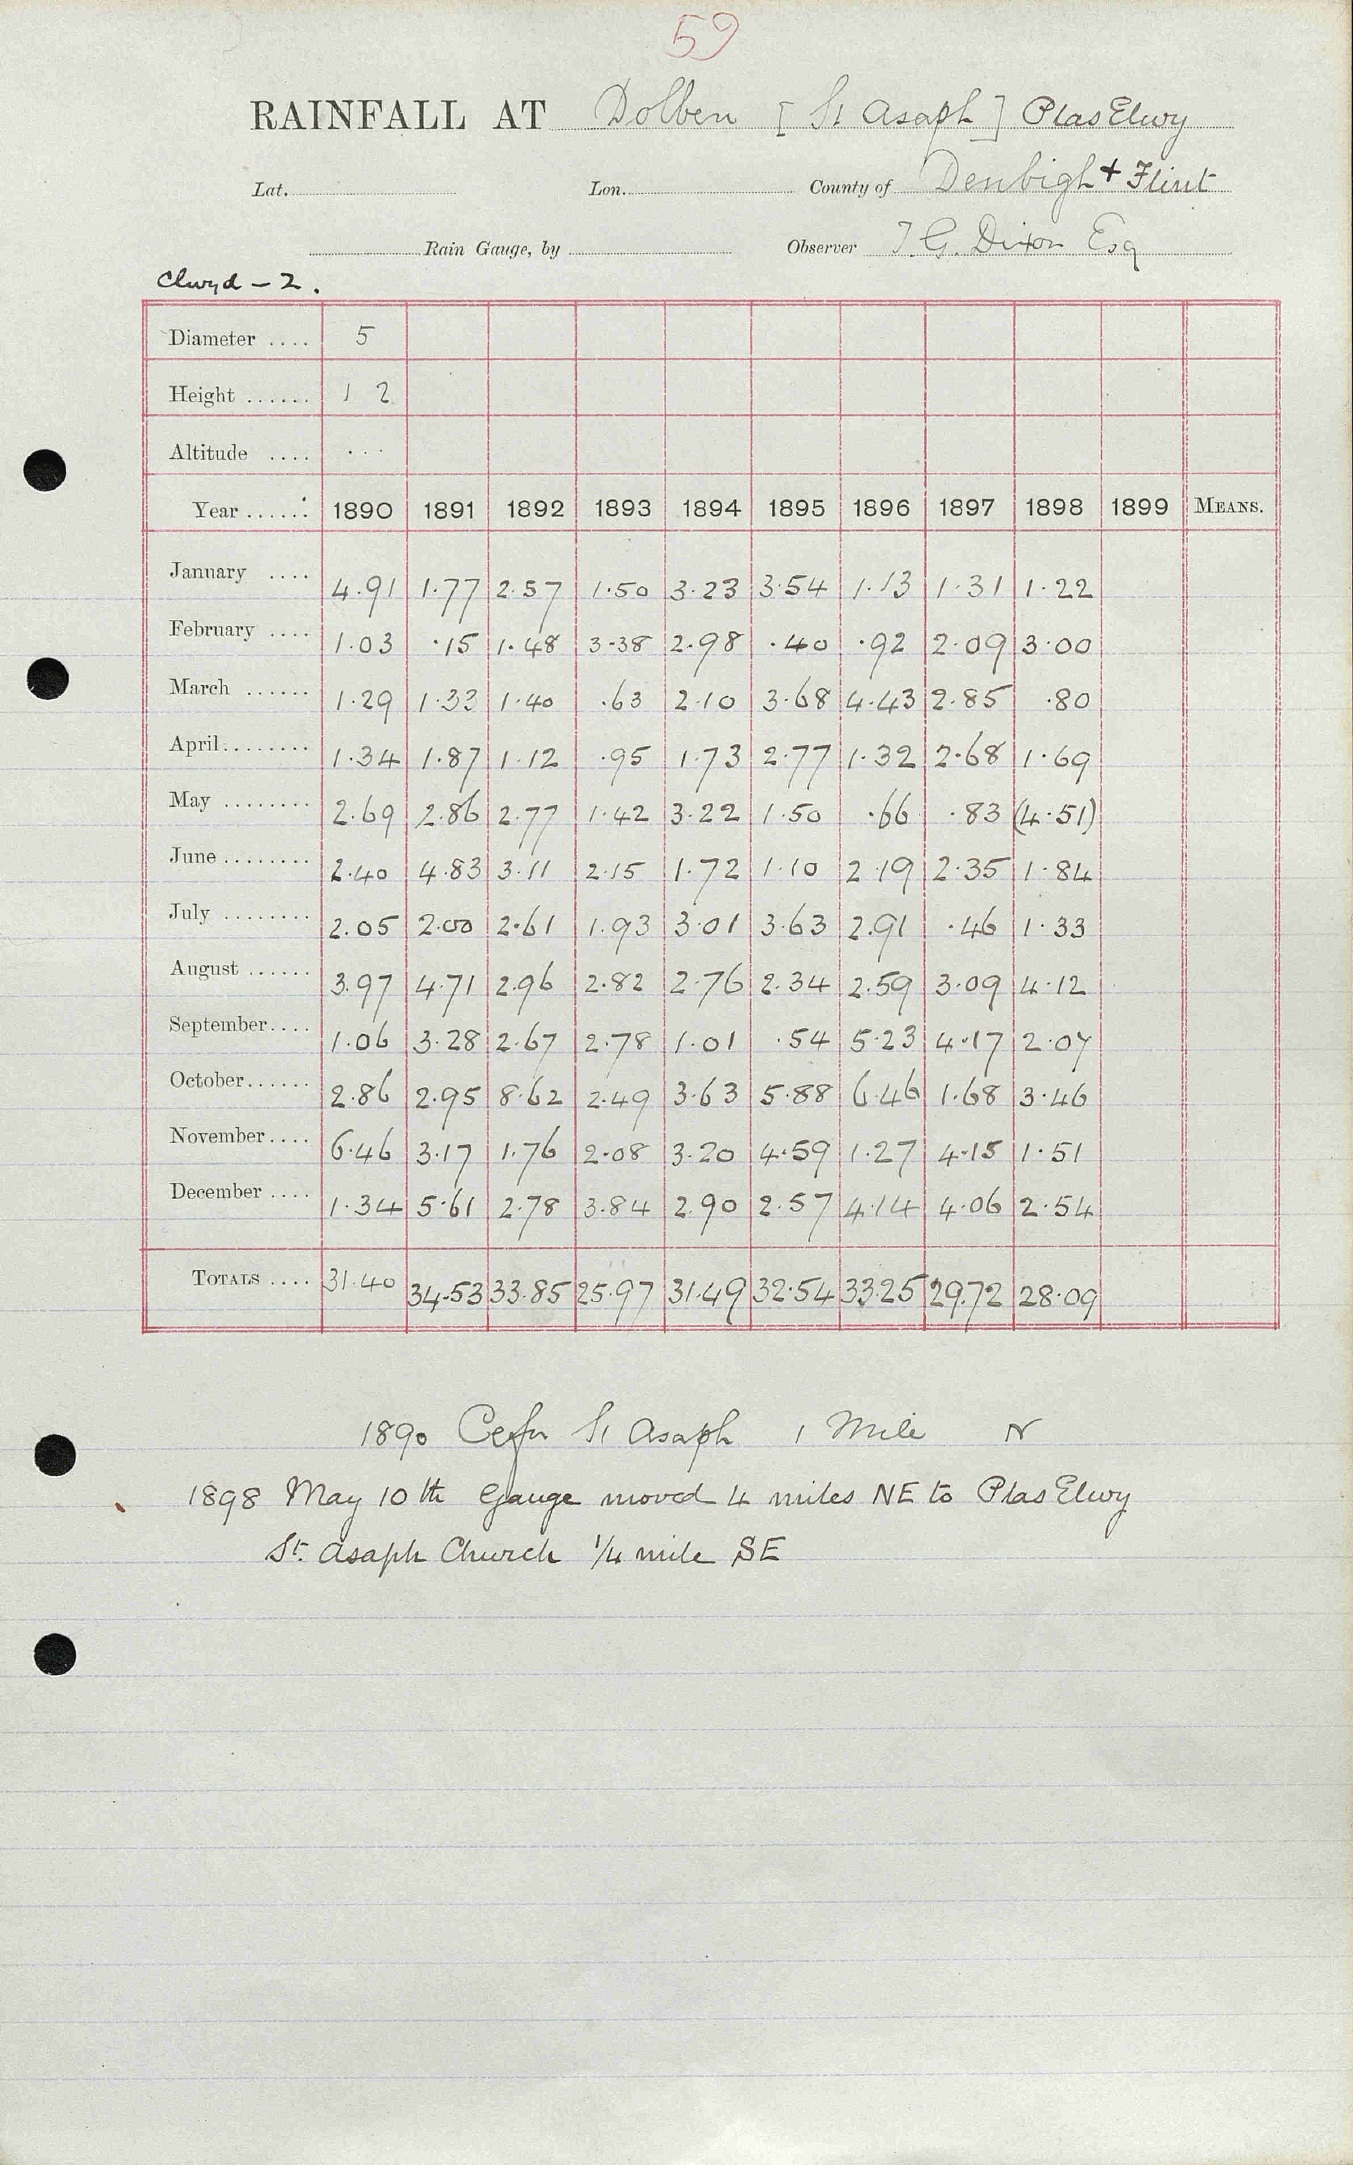 59
RAINFALL AT Dolben [St Asaph] Plas Elwy
Lat. Lon. County of Denbigh + Flint
Rain Gauge, by Observer T. G. Dixon Esq
Clwyd - 2.
Diameter .... 5
Height ...... 1 2
Altitude .... ...
Year ...... 1890 1891 1892 1893 1894 1895 1896 1897 1898 1899 MEANS.
January .... 4.91 1.77 2.57 1.50 3.23 3.54 1.13 1.31 1.22
February .... 1.03 .15 1.48 3.38 2.98 .40 .92 2.09 3.00
March ...... 1.29 1.33 1.40 .63 2.10 3.68 4.43 2.85 .80
April ........ 1.34 1.87 1.12 .95 1.73 2.77 1.32 2.68 1.69
May ........ 2.69 2.86 2.77 1.42 3.22 1.50 .66 .83 (4.51)
June ........ 2.40 4.83 3.11 2.15 1.72 1.10 2.19 2.35 1.84
July ........ 2.05 2.00 2.61 1.93 3.01 3.63 2.91 .46 1.33
August ...... 3.97 4.71 2.96 2.82 2.76 2.34 2.59 3.09 4.12
September .... 1.06 3.28 2.67 2.78 1.01 .54 5.23 4.17 2.07
October ...... 2.86 2.95 8.62 2.49 3.63 5.88 6.46 1.68 3.46
November .... 6.46 3.17 1.76 2.08 3.20 4.59 1.27 4.15 1.51
December .... 1.34 5.61 2.78 3.84 2.90 2.57 4.14 4.06 2.54
TOTALS .... 31.40 34.53 33.85 25.97 31.49 32.54 33.25 29.72 28.09
1890 Cefn St Asaph 1 Mile N
1898 May 10th Gauge moved 4 miles NE to Plas Elwy
St. Asaph Church 1/4 mile SE